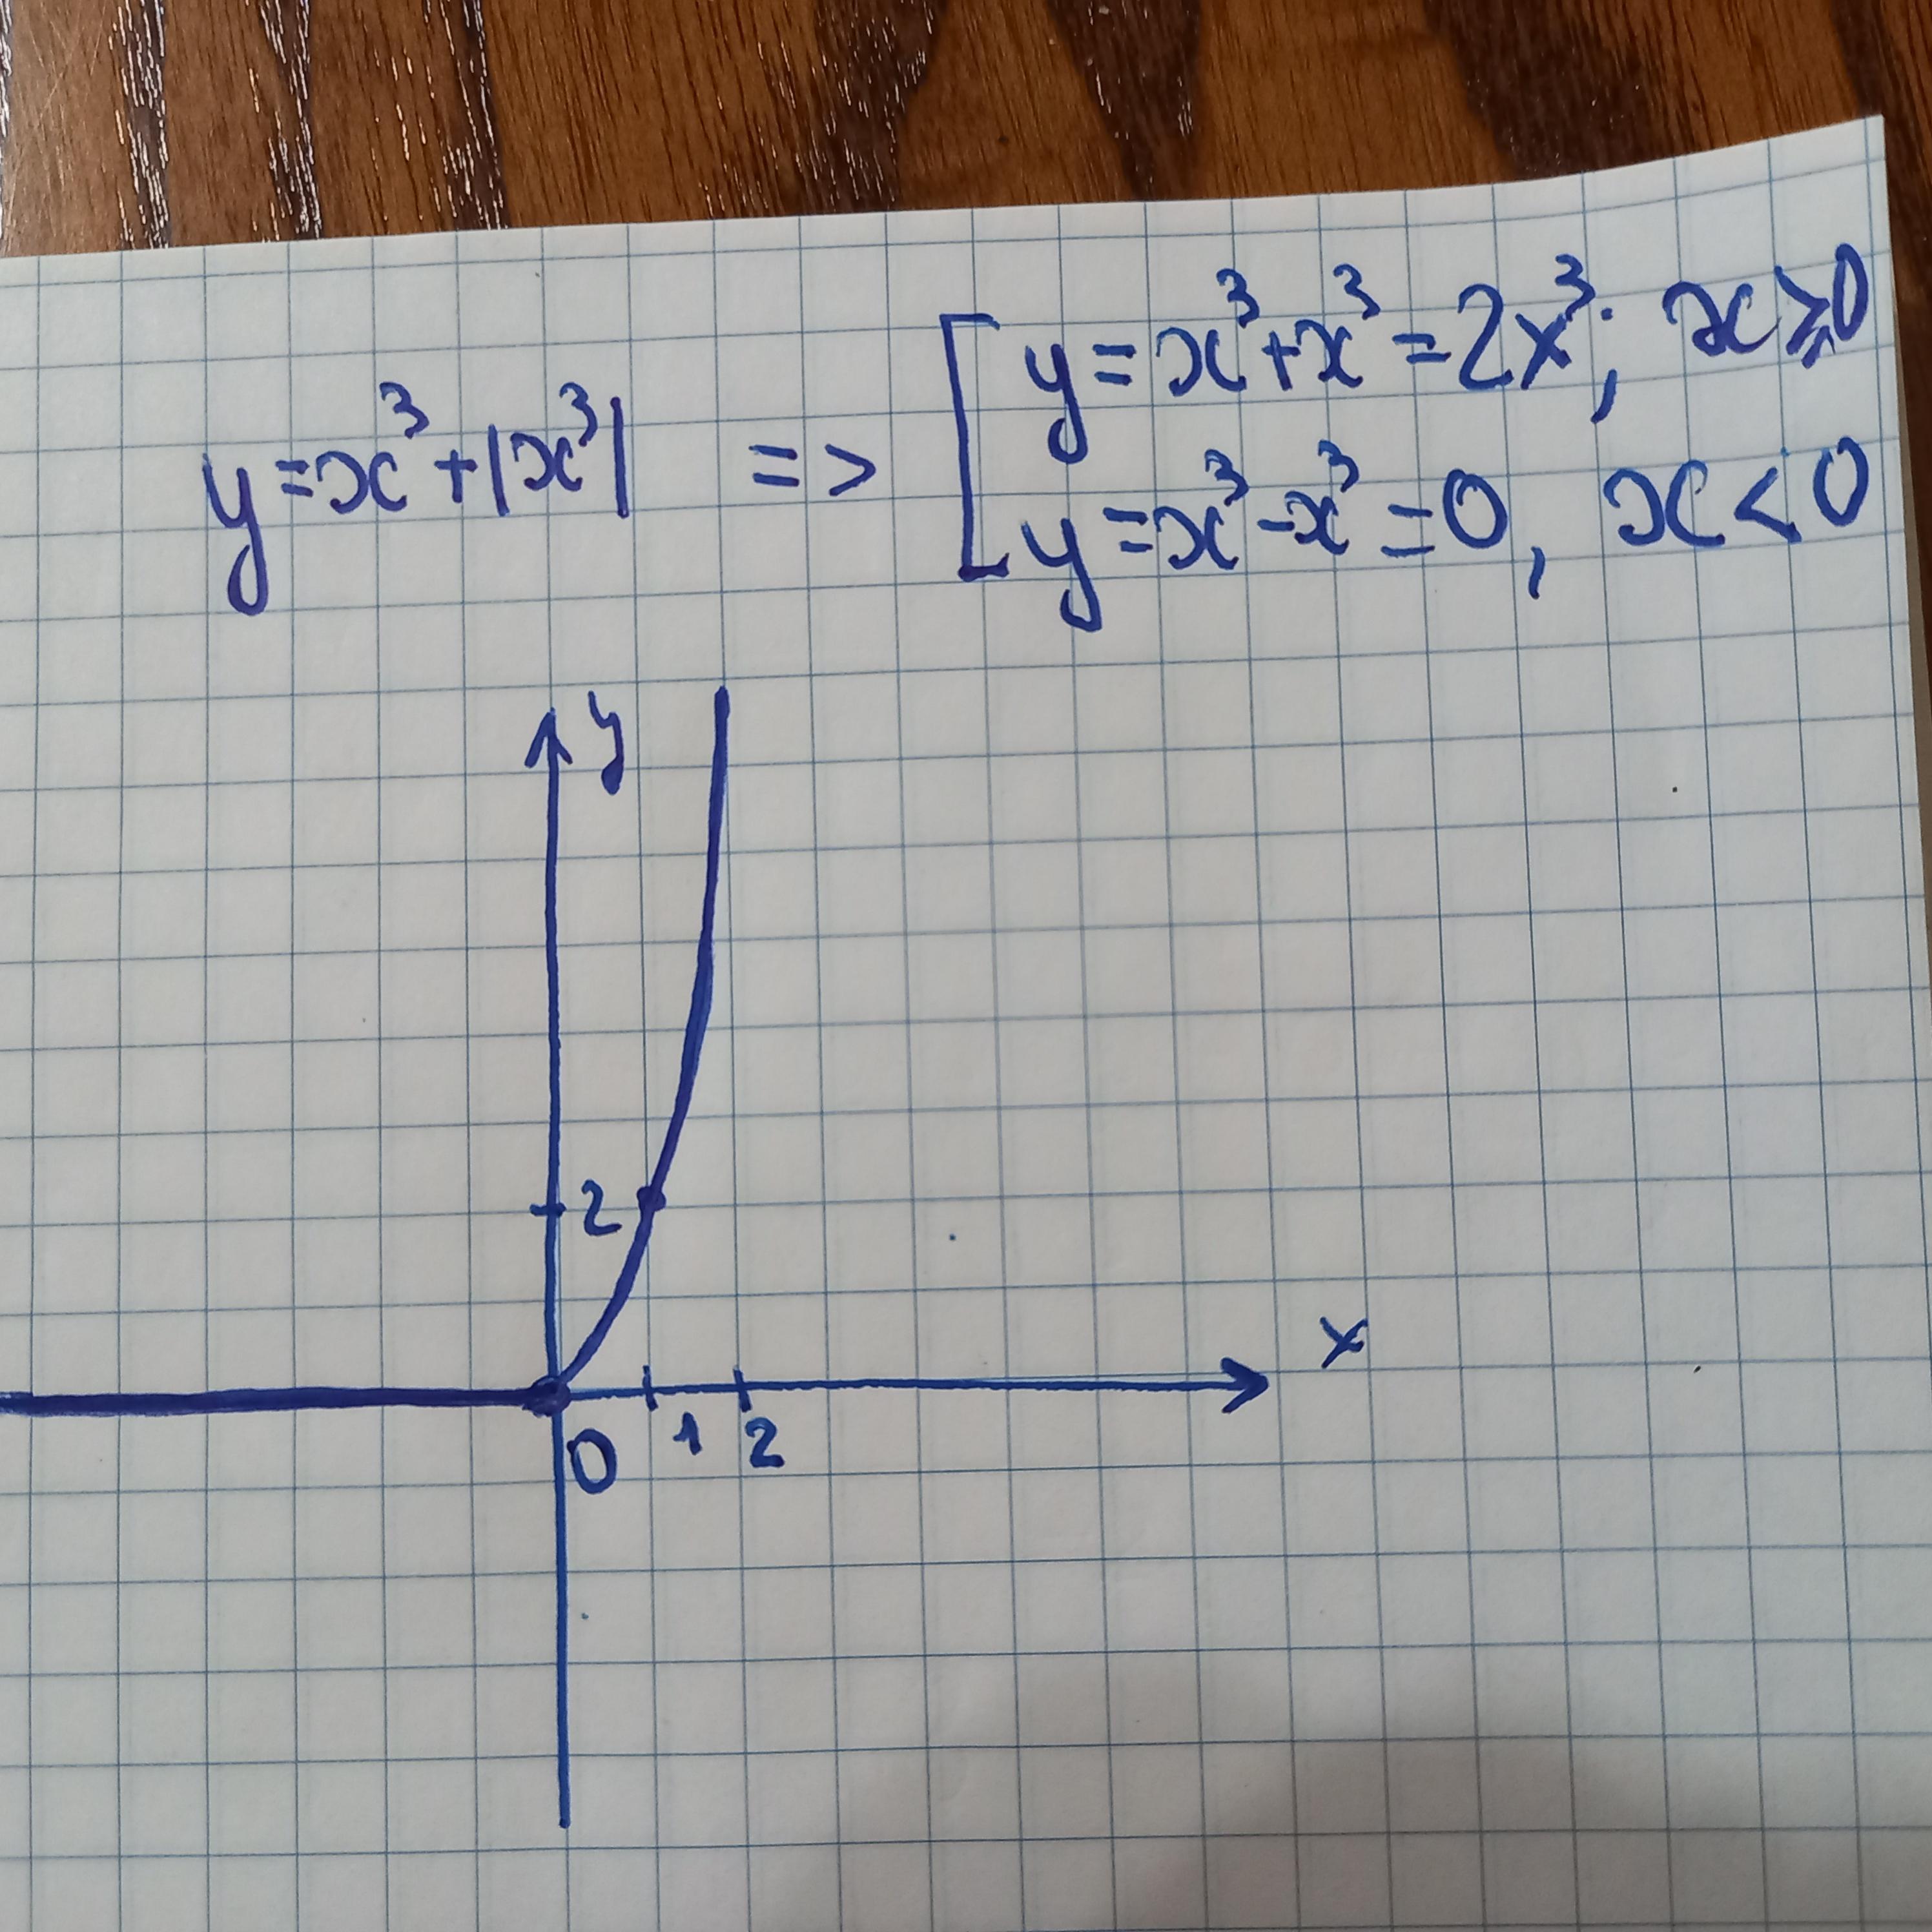 y=x³+|x³| => [ y=x³+x³=2x³; x⩾0
y=x³-x³=0, x<0
y
2
x
0 1 2